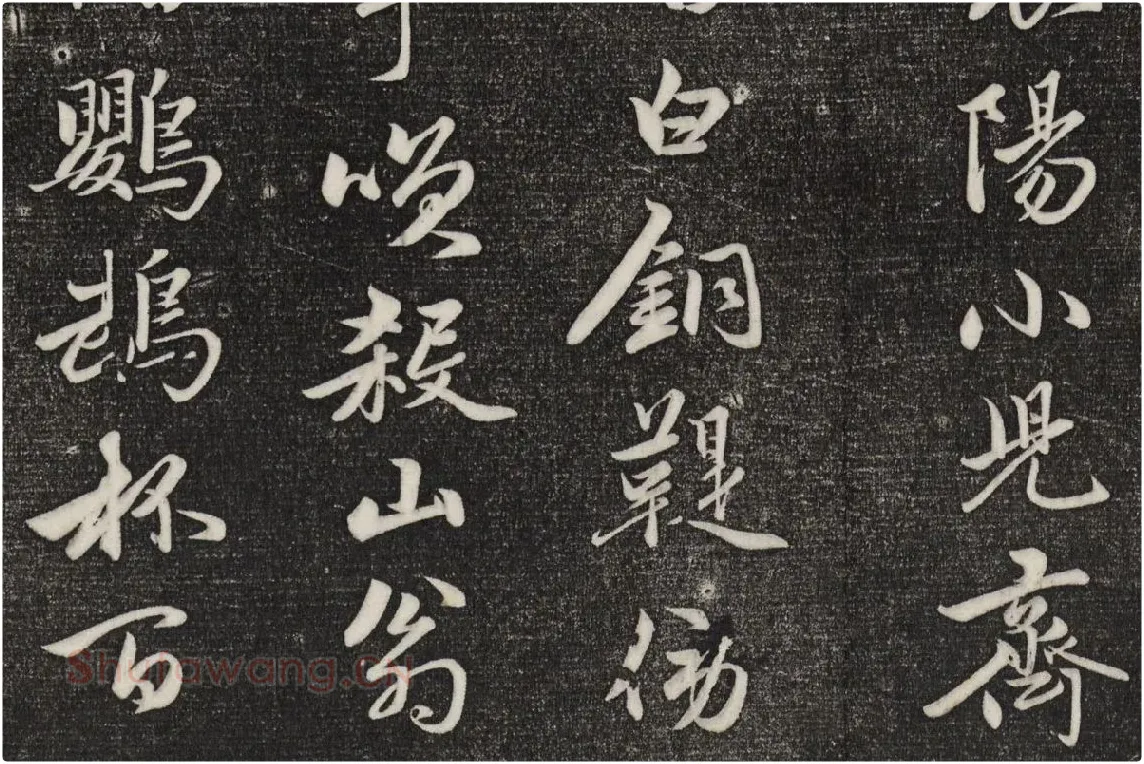 陽小兒齊
白銅鞮傍
咲殺山翁
鸚鵡杯百
Shufawang.CN